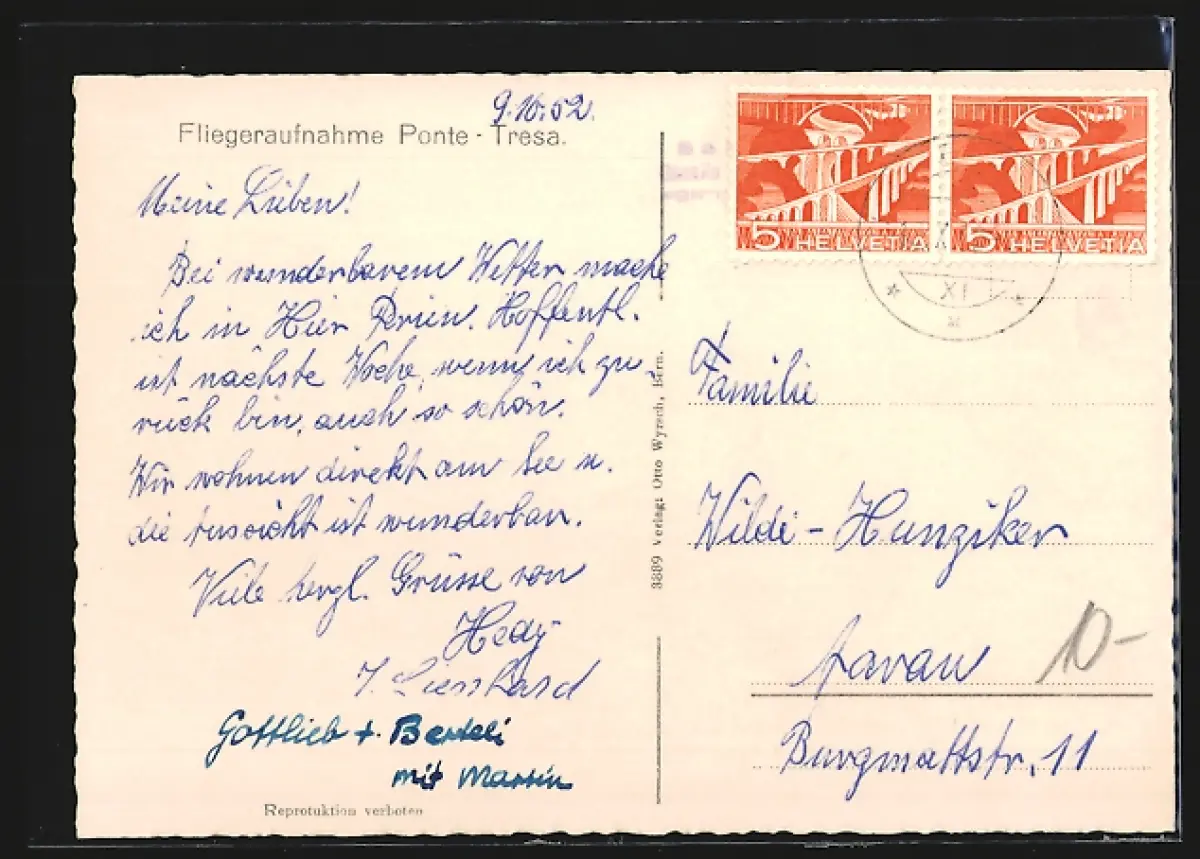 9.10.52.
Fliegeraufnahme Ponte - Tresa.
Meine Lieben!
Bei wunderbarem Wetter mache
ich in Hier Ferien. Hoffentl.
ist nächste Woche, wenn ich zu-
rück bin, auch so schön.
Wir wohnen direkt am See u.
die Aussicht ist wunderbar.
Viele herzl. Grüsse von
Hedy
Lienhard
Gottlieb + Berteli
mit Martin
Reprotuktion verboten
3889 Verlag: Otto Wyrsch, Bern.
5 HELVETIA
5 HELVETIA
XI
Familie
Wildi - Hunziker
Aarau
10-
Burgmattstr. 11